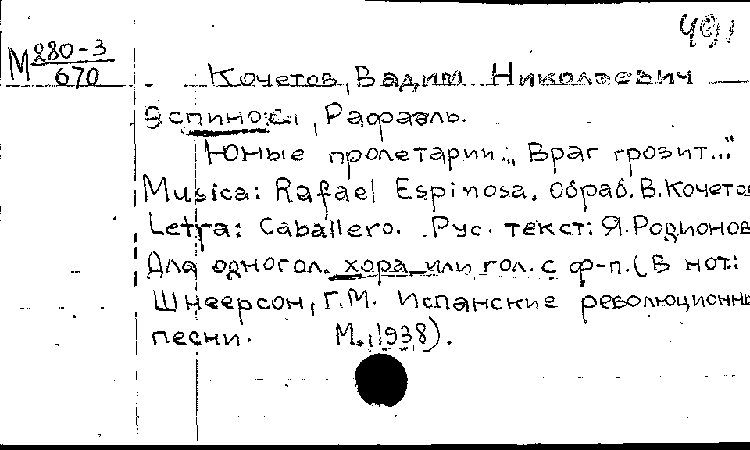 491
М 280-3/670
Кочетов, Вадим Николаевич
Эспиноса, Рафаэль.
Юные пролетарии: „Враг грозит..."
Musica: Rafael Espinosa. Обраб. В. Кочетов
Letra: Caballero. Рус. текст: Я. Родионов
Для одногол. хора или гол. с ф-п. (В нот:
Шнеерсон, Г.М. Испанские революционны
песни. М., 1938).